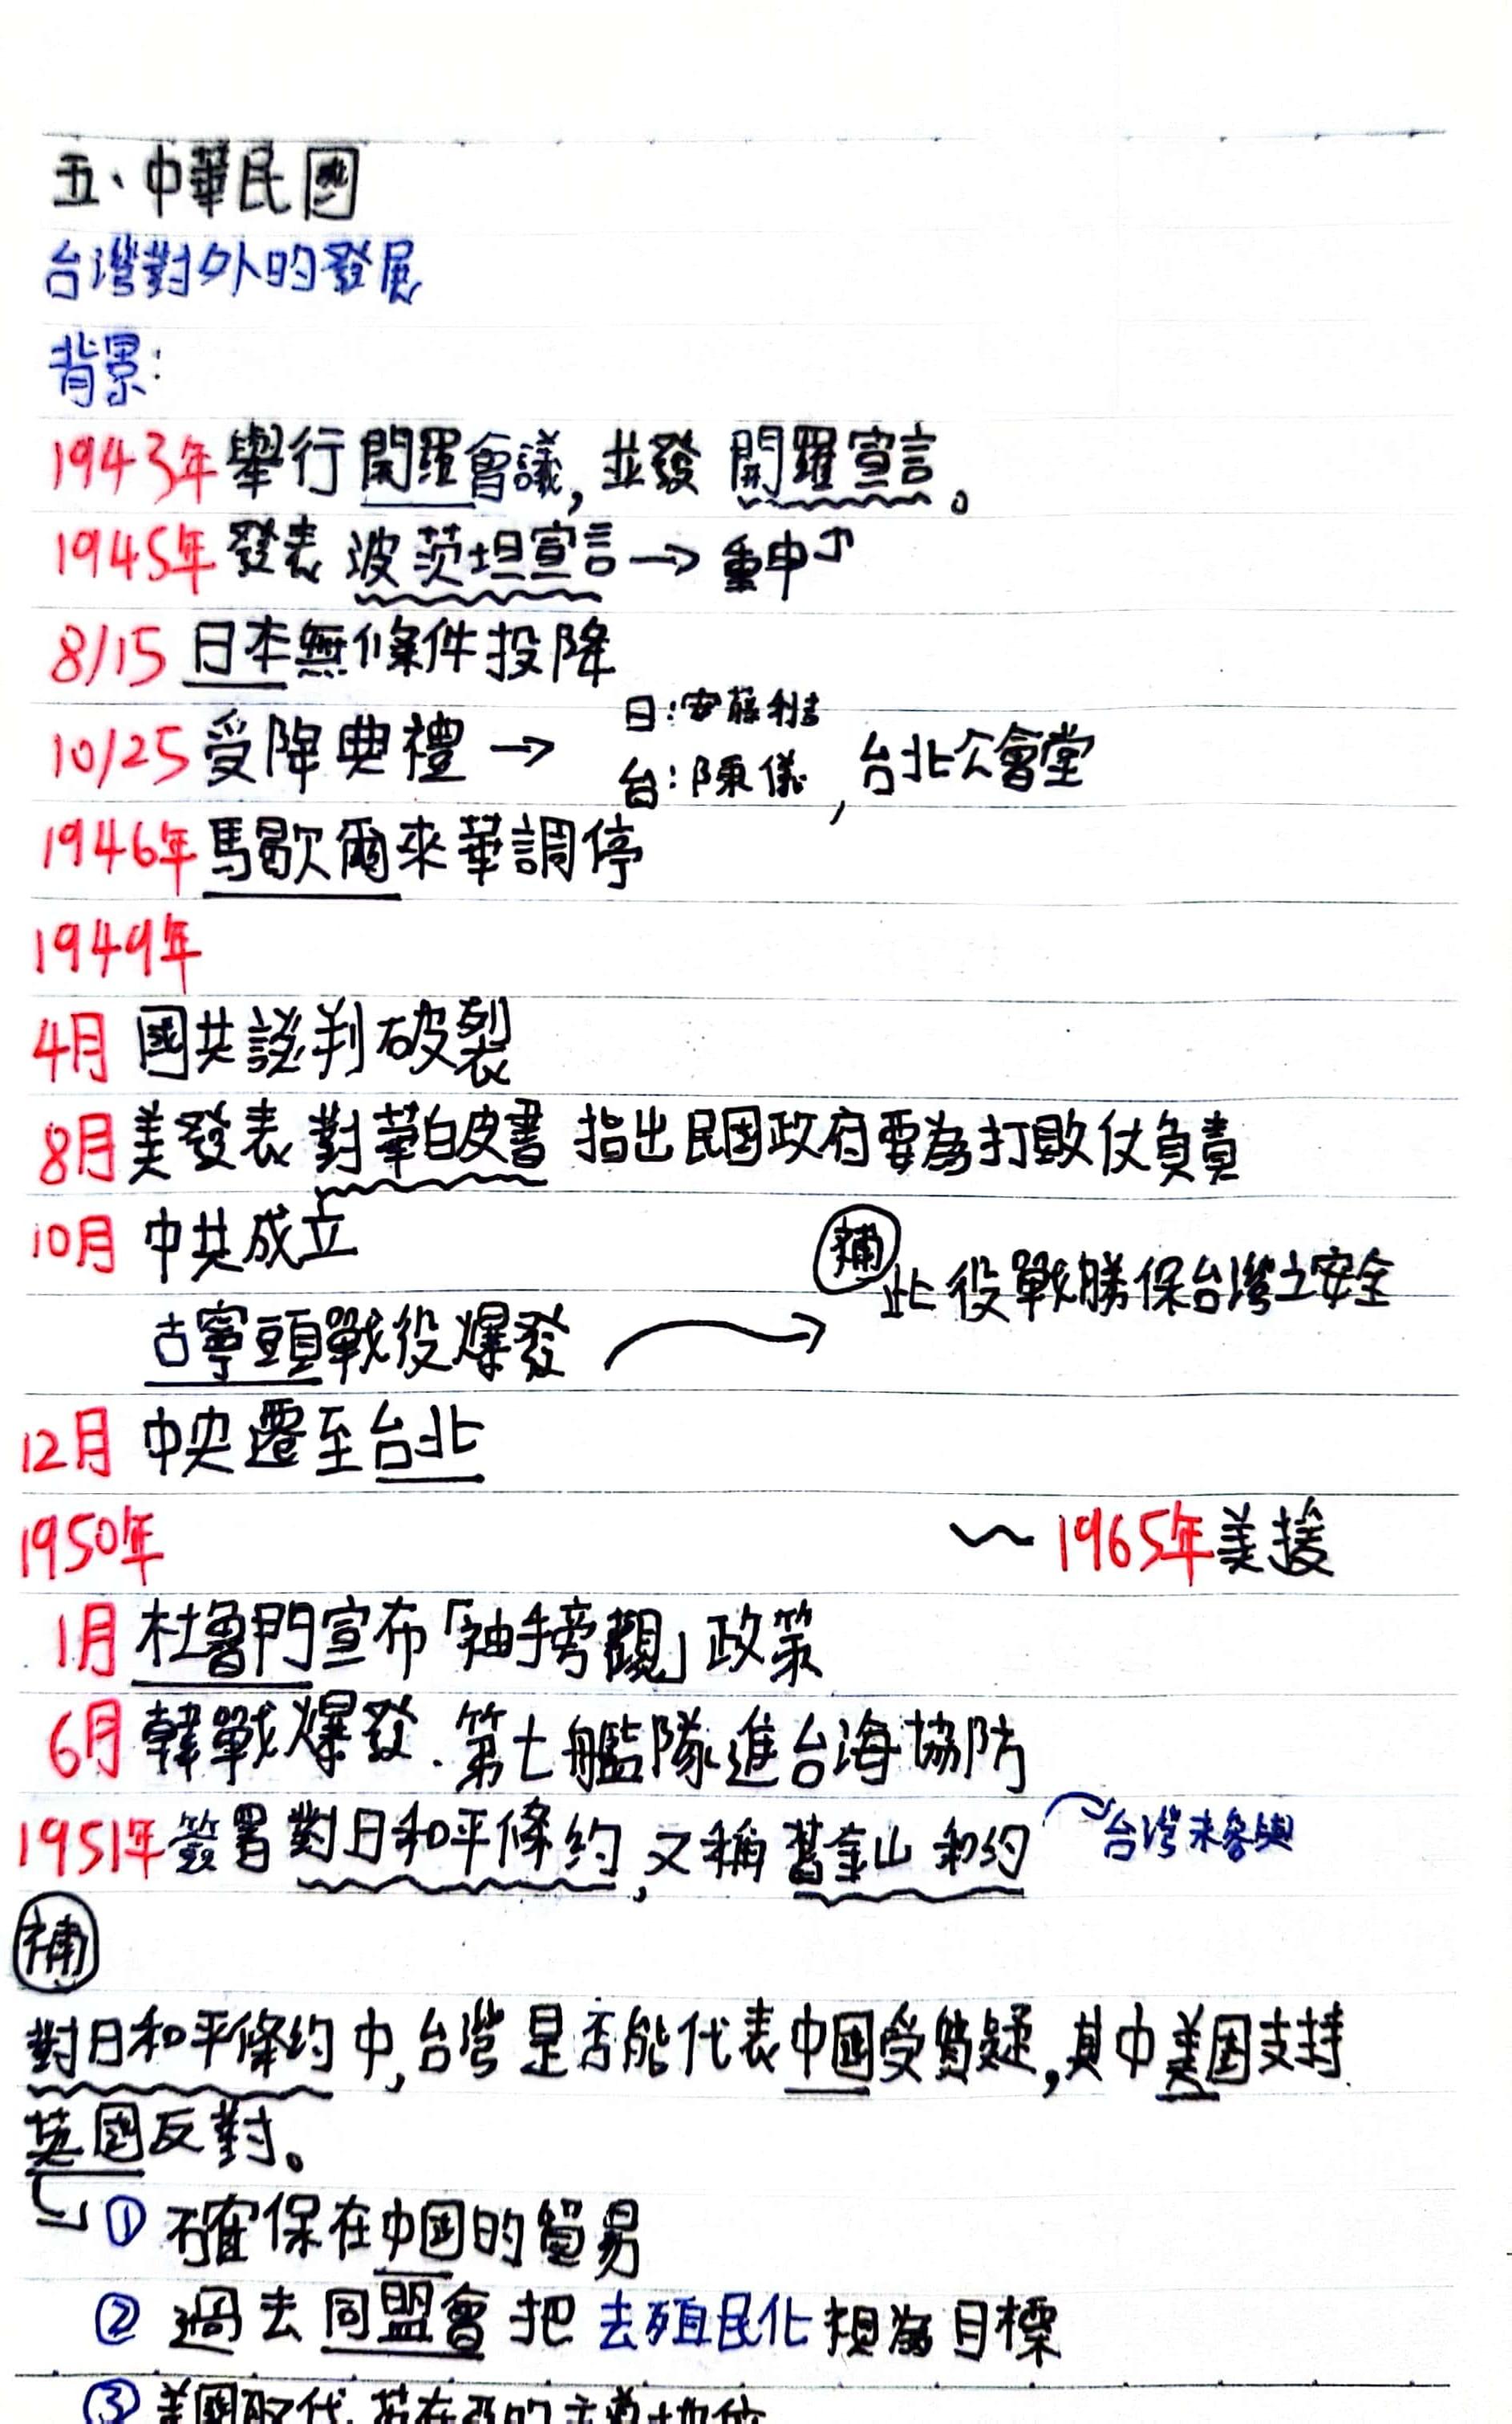 五、中華民國
台灣對外的發展
背景:
1943年舉行開羅會議,並發 開羅宣言。
1945年發表 波茨坦宣言→重申↑
8/15 日本無條件投降
10/25 受降典禮 → 日:安藤利吉
台:陳儀, 台北公會堂
1946年馬歇爾來華調停
1949年
4月 國共談判破裂
8月美發表 對華白皮書 指出民国政府要為打敗仗負責
10月 中共成立
補 此役戰勝保台灣之安全
古寧頭戰役爆發
12月 中央遷至台北
1950年 ~ 1965年美援
1月 杜魯門宣布「袖手旁觀」政策
6月韓戰爆發.第七艦隊進台海協防
1951年簽署對日和平條約,又稱舊金山和約 台灣未參與
補
對日和平條約中,台灣是否能代表中國受質疑,其中美国支持
英國反對。
① 確保在中国的貿易
② 過去同盟會把 去殖民化 視為目標
③ 美國取代 英在亞的主導地位